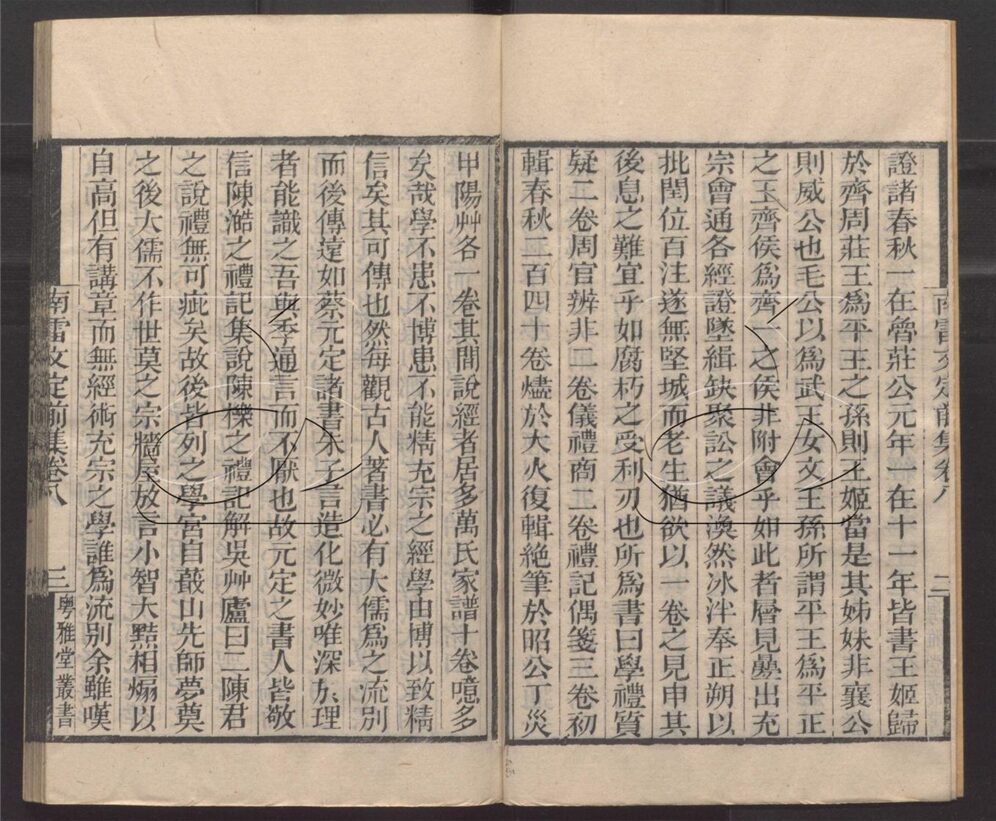 證諸春秋一在魯莊公元年一在十一年皆書王姬歸
於齊周莊王爲平王之孫則王姬當是其姊妹非襄公
則威公也毛公以爲武王女文王孫所謂平王爲平正
之王齊侯爲齊一之侯非附會乎如此者層見疊出充
宗會通各經證墜緝缺聚訟之議渙然冰泮奉正朔以
批閏位百注遂無堅城而老生猶欲以一卷之見申其
後息之難宜乎如腐朽之受利刃也所爲書曰學禮質
疑二卷周官辨非二卷儀禮商二卷禮記偶箋三卷初
輯春秋二百四十卷燼於大火復輯絶筆於昭公丁災
南雷文定前集卷八
二
甲陽艸各一卷其間說經者居多萬氏家譜十卷噫多
矣哉學不患不博患不能精充宗之經學由博以致精
信矣其可傳也然每觀古人著書必有大儒爲之流別
而後傳遠如蔡元定諸書朱子言造化微妙唯深於理
者能識之吾與季通言而不厭也故元定之書人皆敬
信陳澔之禮記集說陳櫟之禮記解吳艸廬曰二陳君
之說禮無可疵矣故後皆列之學宮自蕺山先師夢奠
之後大儒不作世莫之宗牆屋放言小智大黠相煽以
自高但有講章而無經術充宗之學誰爲流別余雖嘆
南雷文定前集卷八
三
粵雅堂叢書